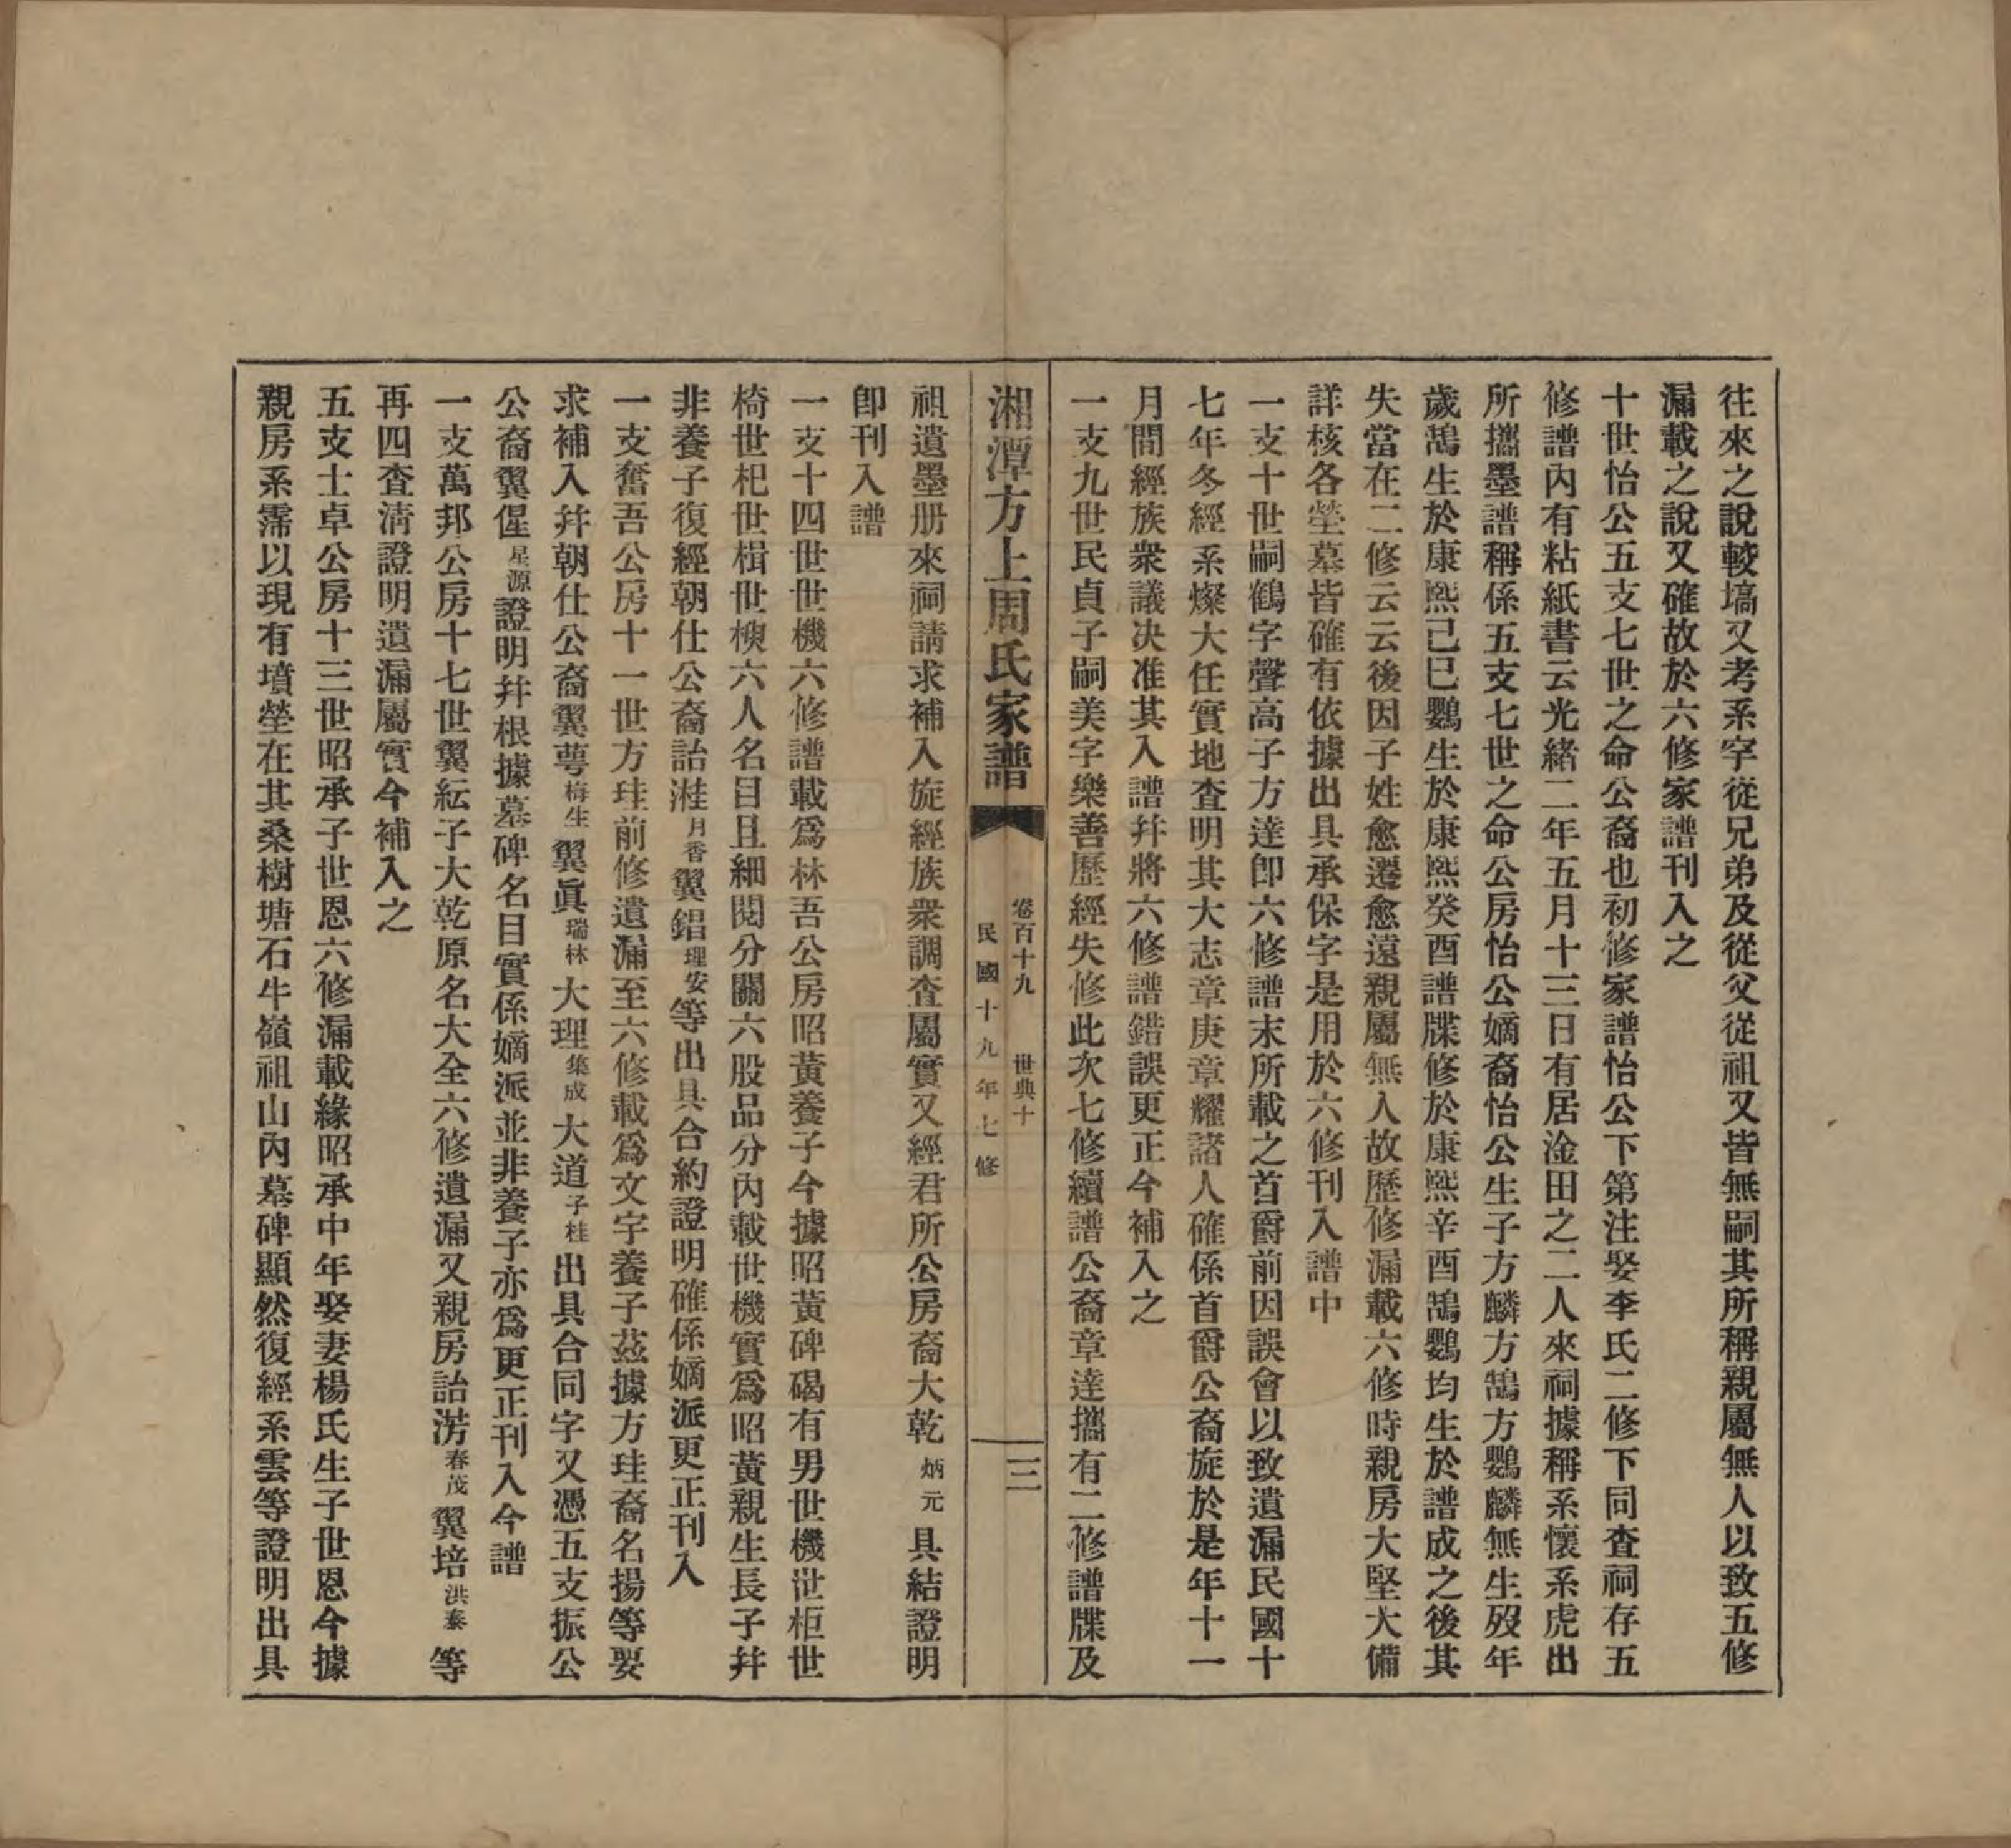 往來之說較塙又考系字從兄弟及從父從祖又皆無嗣其所稱親屬無人以致五修
漏載之說又確故於六修家譜刊入之
十世怡公五支七世之命公裔也初修家譜怡公下第注娶李氏二修下同查祠存五
修譜內有粘紙書云光緒二年五月十三日有居淦田之二人來祠據稱系懷系虎出
所攜墨譜稱係五支七世之命公房怡公嫡裔怡公生子方麟方鵠方鸚麟無生歿年
歲鵠生於康熙己巳鸚生於康熙癸酉譜牒修於康熙辛酉鵠鸚均生於譜成之後其
失當在二修云云後因子姓愈遷愈遠親屬無人故歷修漏載六修時親房大堅大備
詳核各塋墓皆確有依據出具承保字是用於六修刊入譜中
一支十世嗣鶴字聲高子方達即六修譜末所載之首爵前因誤會以致遺漏民國十
七年冬經系燦大任實地查明其大志章庚章耀諸人確係首爵公裔旋於是年十一
月間經族衆議決准其入譜幷將六修譜錯誤更正今補入之
一支九世民貞子嗣美字樂善歷經失修此次七修續譜公裔章達攜有二修譜牒及
湘潭方上周氏家譜
卷百十九 世典十
民國十九年七修
三
祖遺墨册來祠請求補入旋經族衆調查屬實又經君所公房裔大乾炳元具結證明
卽刊入譜
一支十四世世機六修譜載爲林吾公房昭黃養子今據昭黃碑碣有男世機世柜世
椅世杞世楫世楩六人名目且細閱分關六股品分內載世機實爲昭黃親生長子幷
非養子復經朝仕公裔詒溎月香翼錩理安等出具合約證明確係嫡派更正刊入
一支奮吾公房十一世方珪前修遺漏至六修載爲文字養子茲據方珪裔名揚等要
求補入幷朝仕公裔翼萼梅生翼眞瑞林大理集成大道子桂出具合同字又憑五支振公
公裔翼偟星源證明幷根據墓碑名目實係嫡派並非養子亦爲更正刊入今譜
一支萬邦公房十七世翼紜子大乾原名大全六修遺漏又親房詒淓春茂翼培洪泰等
再四查淸證明遺漏屬實今補入之
五支士卓公房十三世昭承子世恩六修漏載緣昭承中年娶妻楊氏生子世恩今據
親房系霈以現有墳塋在其桑樹塘石牛嶺祖山內墓碑顯然復經系雲等證明出具